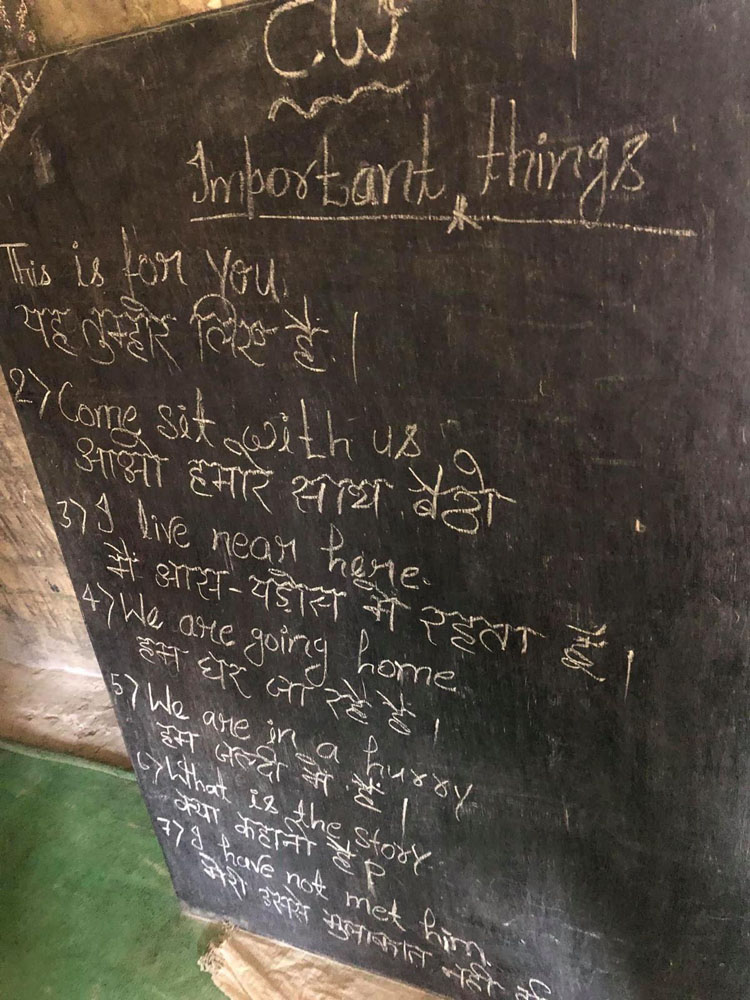 C.W
Important things
This is for you.
यह तुम्हारे लिए है।
2) Come sit with us
आओ हमारे साथ बैठो
3) I live near here.
मैं आस-पड़ोस में रहता हैं।
4) We are going home
हम घर जा रहे हैं।
5) We are in a hurry
हम जल्दी में हैं।
6) What is the story.
क्या कहानी है?
7) I have not met him.
मेरी उससे मुलाकात नहीं